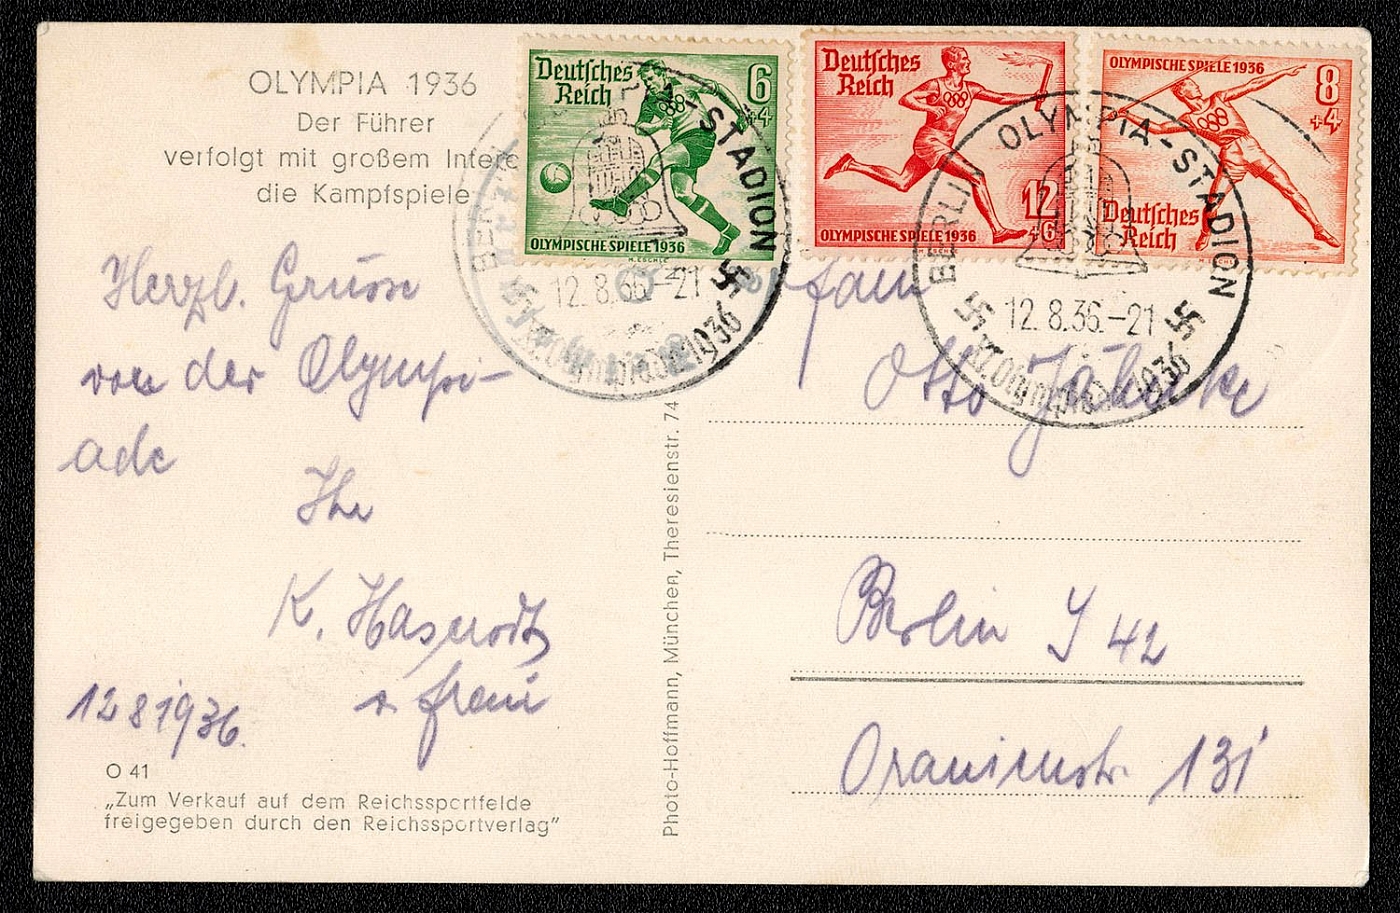 OLYMPIA 1936
Der Führer
verfolgt mit großem Intere
die Kampfspiele
Herzl. Grüsse
von der Olympi-
ade
Ihr
K.
12 8 1936.
O 41
„Zum Verkauf auf dem Reichssportfelde
freigegeben durch den Reichssportverlag"
Photo-Hoffmann, München, Theresienstr. 74
Deutsches
Reich
6
+4
OLYMPISCHE SPIELE 1936
M. ESCHLE
Deutsches
Reich
12
+6
OLYMPISCHE SPIELE 1936
OLYMPISCHE SPIELE 1936
8
+4
Deutsches
Reich
-STADION
12.8.36.-21
XI. Olympiade 1936
BERLIN OLYMPIA-STADION
12.8.36.-21
XI. Olympiade 1936
Otto
Berlin S 42
Oranienstr. 131